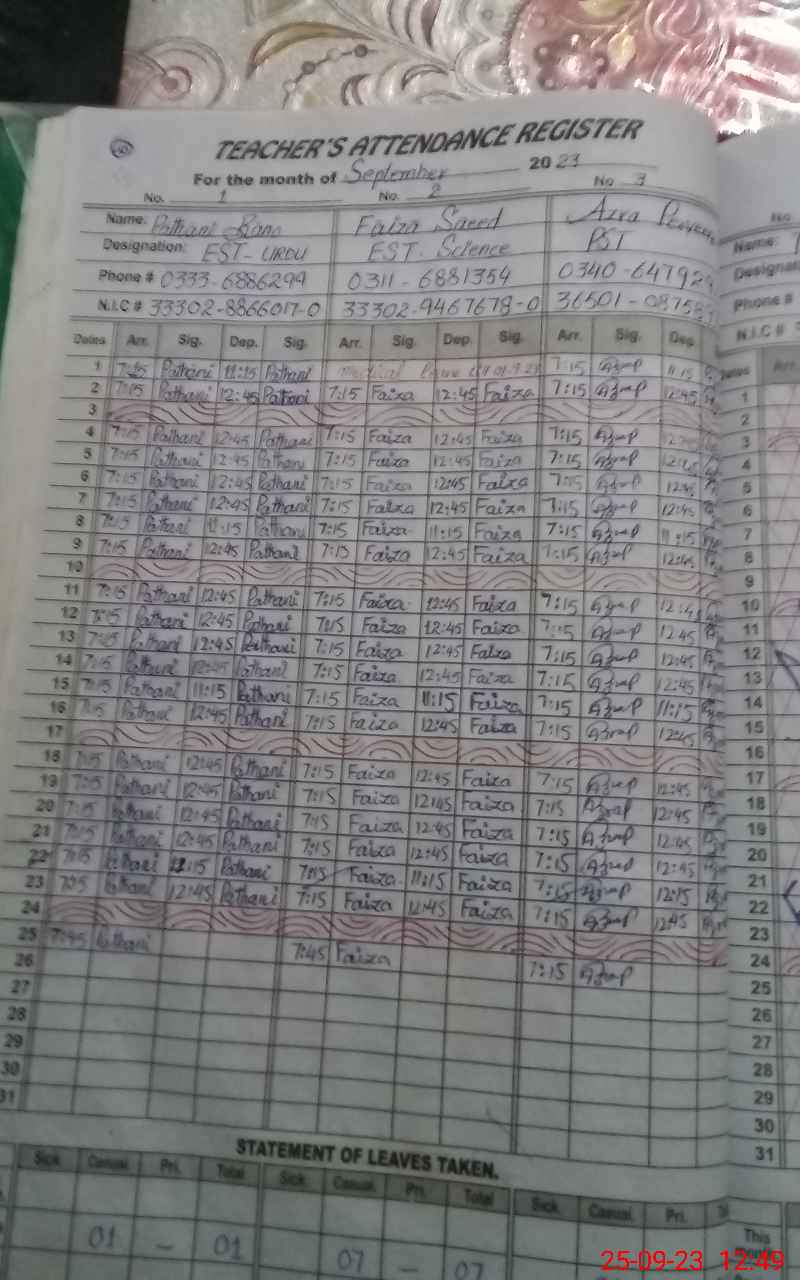 TEACHER'S ATTENDANCE REGISTER
For the month of September 2023
No. 1 No. 2 No 3
Name: Pathani Bano Faiza Saeed Azra
Designation: EST-URDU EST. Science PST
Phone # 0333-6886299 0311-6881354 0340-64792
N.I.C # 33302-8866017-0 33302-9467678-0 36501-08758
Dates Arr. Sig. Dep. Sig. Arr. Sig. Dep. Sig. Arr. Sig. Dep.
1 7:15 Pathani 11:15 Pathani medical leave 7:15 11:15
2 7:15 Pathani 12:45 Pathani 7:15 Faiza 12:45 Faiza 7:15 12:45
3
4 7:15 Pathani 12:45 Pathani 7:15 Faiza 12:45 Faiza 7:15
5 7:15 Pathani 12:45 Pathani 7:15 Faiza 12:45 Faiza 7:15 12:45
6 7:15 Pathani 12:45 Pathani 7:15 Faiza 12:45 Faiza 7:15 12:45
7 7:15 Pathani 12:45 Pathani 7:15 Faiza 12:45 Faiza 7:15 12:45
8 7:15 Pathani 11:15 Pathani 7:15 Faiza 11:15 Faiza 7:15 11:15
9 7:15 Pathani 12:45 Pathani 7:15 Faiza 12:45 Faiza 7:15 12:45
10
11 7:15 Pathani 12:45 Pathani 7:15 Faiza 12:45 Faiza 7:15 12:45
12 7:15 Pathani 12:45 Pathani 7:15 Faiza 12:45 Faiza 7:15 12:45
13 7:15 Pathani 12:45 Pathani 7:15 Faiza 12:45 Faiza 7:15 12:45
14 7:15 Pathani 12:45 Pathani 7:15 Faiza 12:45 Faiza 7:15 12:45
15 7:15 Pathani 11:15 Pathani 7:15 Faiza 11:15 Faiza 7:15 11:15
16 7:15 Pathani 12:45 Pathani 7:15 Faiza 12:45 Faiza 7:15 12:45
17
18 7:15 Pathani 12:45 Pathani 7:15 Faiza 12:45 Faiza 7:15 12:45
19 7:15 Pathani 12:45 Pathani 7:15 Faiza 12:45 Faiza 7:15 12:45
20 7:15 Pathani 12:45 Pathani 7:15 Faiza 12:45 Faiza 7:15 12:45
21 7:15 Pathani 12:45 Pathani 7:15 Faiza 12:45 Faiza 7:15 12:45
22 7:15 Pathani 11:15 Pathani 7:15 Faiza 11:15 Faiza 7:15 12:15
23 7:15 Pathani 12:45 Pathani 7:15 Faiza 12:45 Faiza 7:15 12:45
24
25 7:45 Pathani 7:45 Faiza 7:15
26
27
28
29
30
31
STATEMENT OF LEAVES TAKEN.
Sick Casual Pri. Total Sick Casual Pri. Total Sick Casual. Pri.
01 – 01 07 – 07
No
Name:
Phone #
N.I.C #
Dates Arr.
1
2
3
4
5
6
7
8
9
10
11
12
13
14
15
16
17
18
19
20
21
22
23
24
25
26
27
28
29
30
31
This
25-09-23 12:49